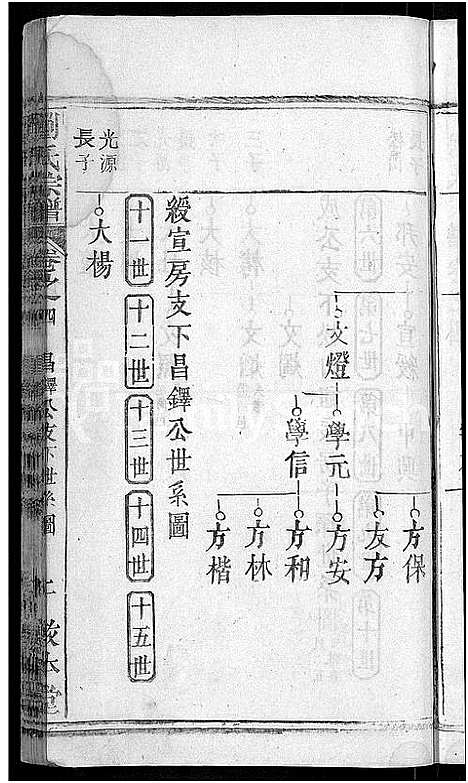 方保
友方
文燈
學元
方安
學信
方和
方林
方楷
綬宣房支下昌鐸公世系圖
十一世
十二世
十三世
十四世
十五世
大楊
光源
長子
劉氏宗譜
卷之四
昌鐸公支下世系圖